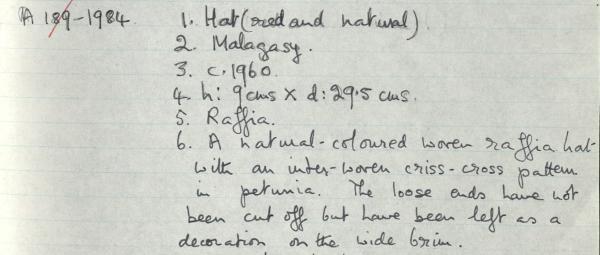 A 189-1984
1. Hat (red and natural).
2. Malagasy.
3. c.1960.
4. h: 9cms x d: 29.5 cms.
5. Raffia.
6. A natural-coloured woven raffia hat
with an inter-woven criss-cross pattern
in petunia. The loose ends have not
been cut off but have been left as a
decoration on the wide brim.